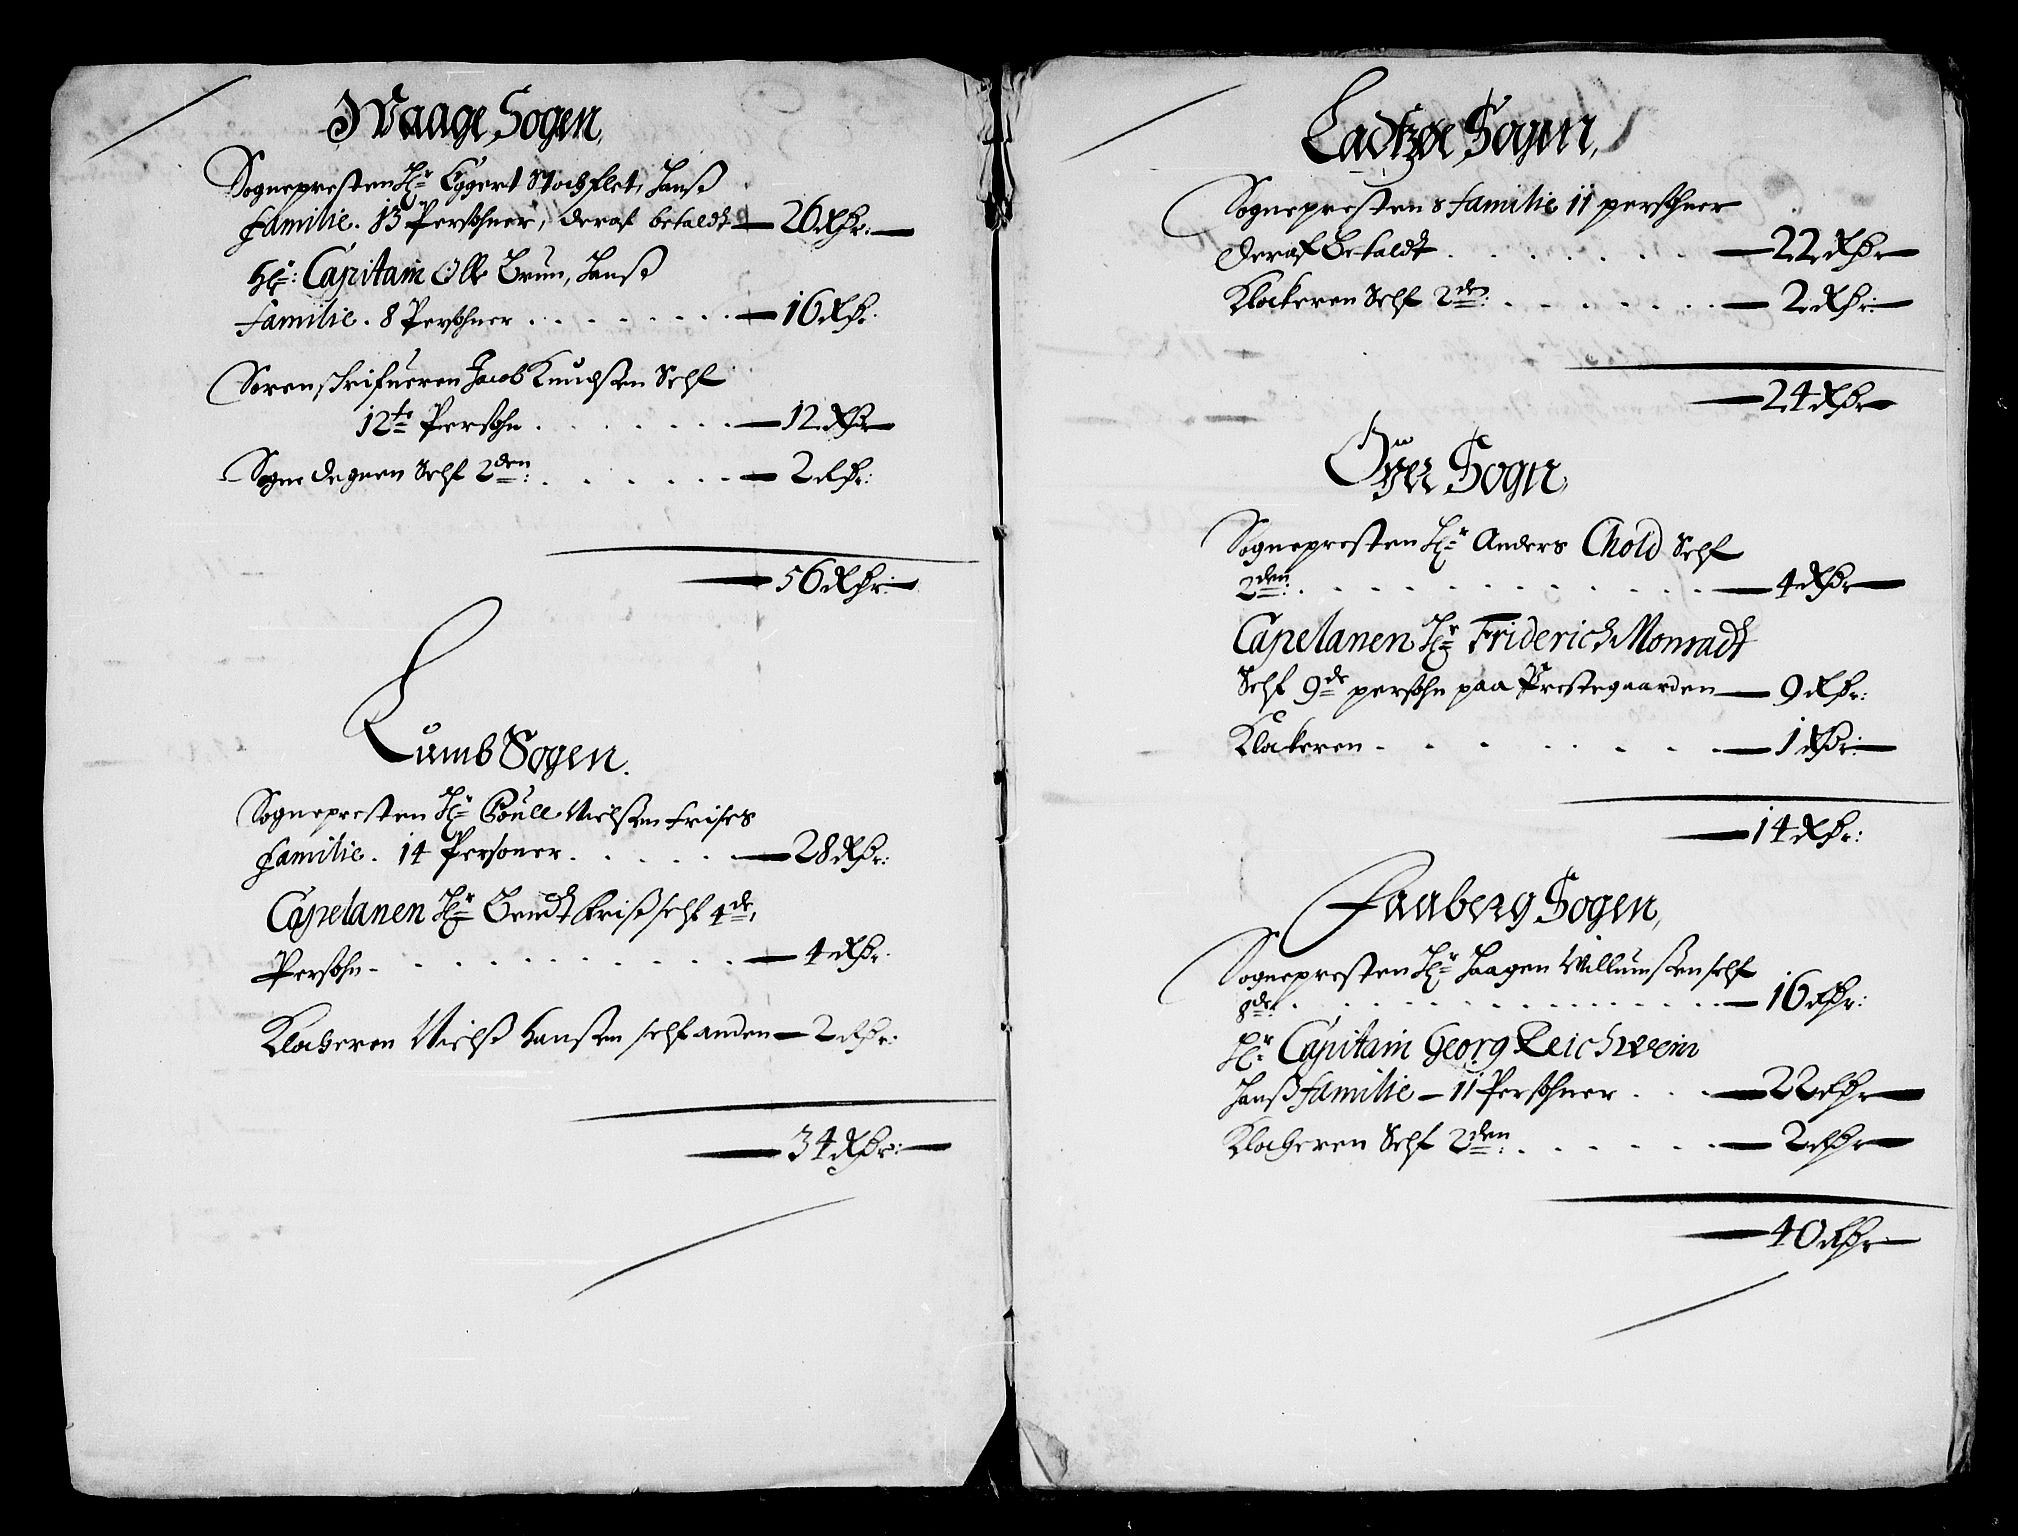 Waage Sogen,
Sognepresten Hr Eggert Stochflet, Hanß
familie. 13 Persohner, deraf betaldt 26 Rdr:
Hr: Capitain Olle Brun, Hanß
familie. 8 Persohner . . . . . . . . 16 Rdr:
Sorenschrifueren Jacob Knudsen Self
12te Persohn . . . . . . . 12 Rdr
Sogne degnen Self 2den: . . . . . . 2 Rdr:
56 Rdr:
Lumb Sogen.
Sognepresten Hr Poull Nielsen Frises
familie. 14 Personer . . . . . . 28 Rdr:
Capelanen Hr Bendt Friß self 4de,
Persohn . . . . . . . . . . . 4 Rdr.
Klocheren Nielß Hansen self anden 2 Rdr:
34 Rdr:
Ladtzøe Sogen,
Sogneprestens familie 11 persohner
deraf Betaldt . . . . . . . 22 Rdr
Klokeren Self 2den: . . . . . . 2 Rdr:
24 Rdr
Øyer Sogn,
Sognepresten Hr Anders Chold Self
2den: . . . . . . . . . . . 4 Rdr
Capelanen Hr Friderich Monradt
Self 9de persohn paa Prestegaarden 9 Rdr:
Klokeren . . . . . . . . 1 Rdr:
14 Rdr:
Faaberg Sogen,
Sognepresten Hr Haagen Willumsen self
8de: . . . . . . . . . . . . . . . 16 Rdr:
Hr Capitain Georg Reichwein
Hanß familie 11 Persohner . . . 22 Rdr
Klocheren Self 2den: . . . . . . 2 Rdr
40 Rdr